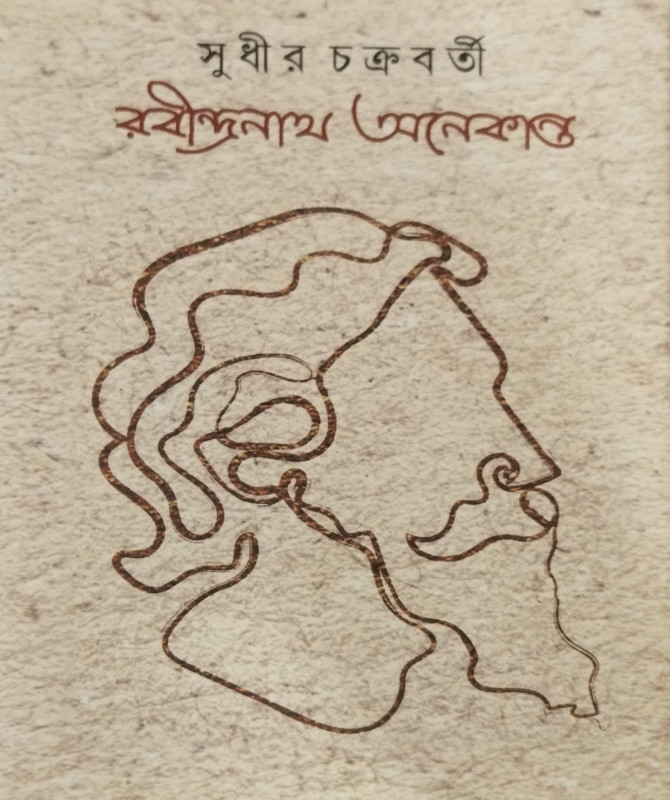 সুধীর চক্রবর্তী
রবীন্দ্রনাথ অনেকান্ত